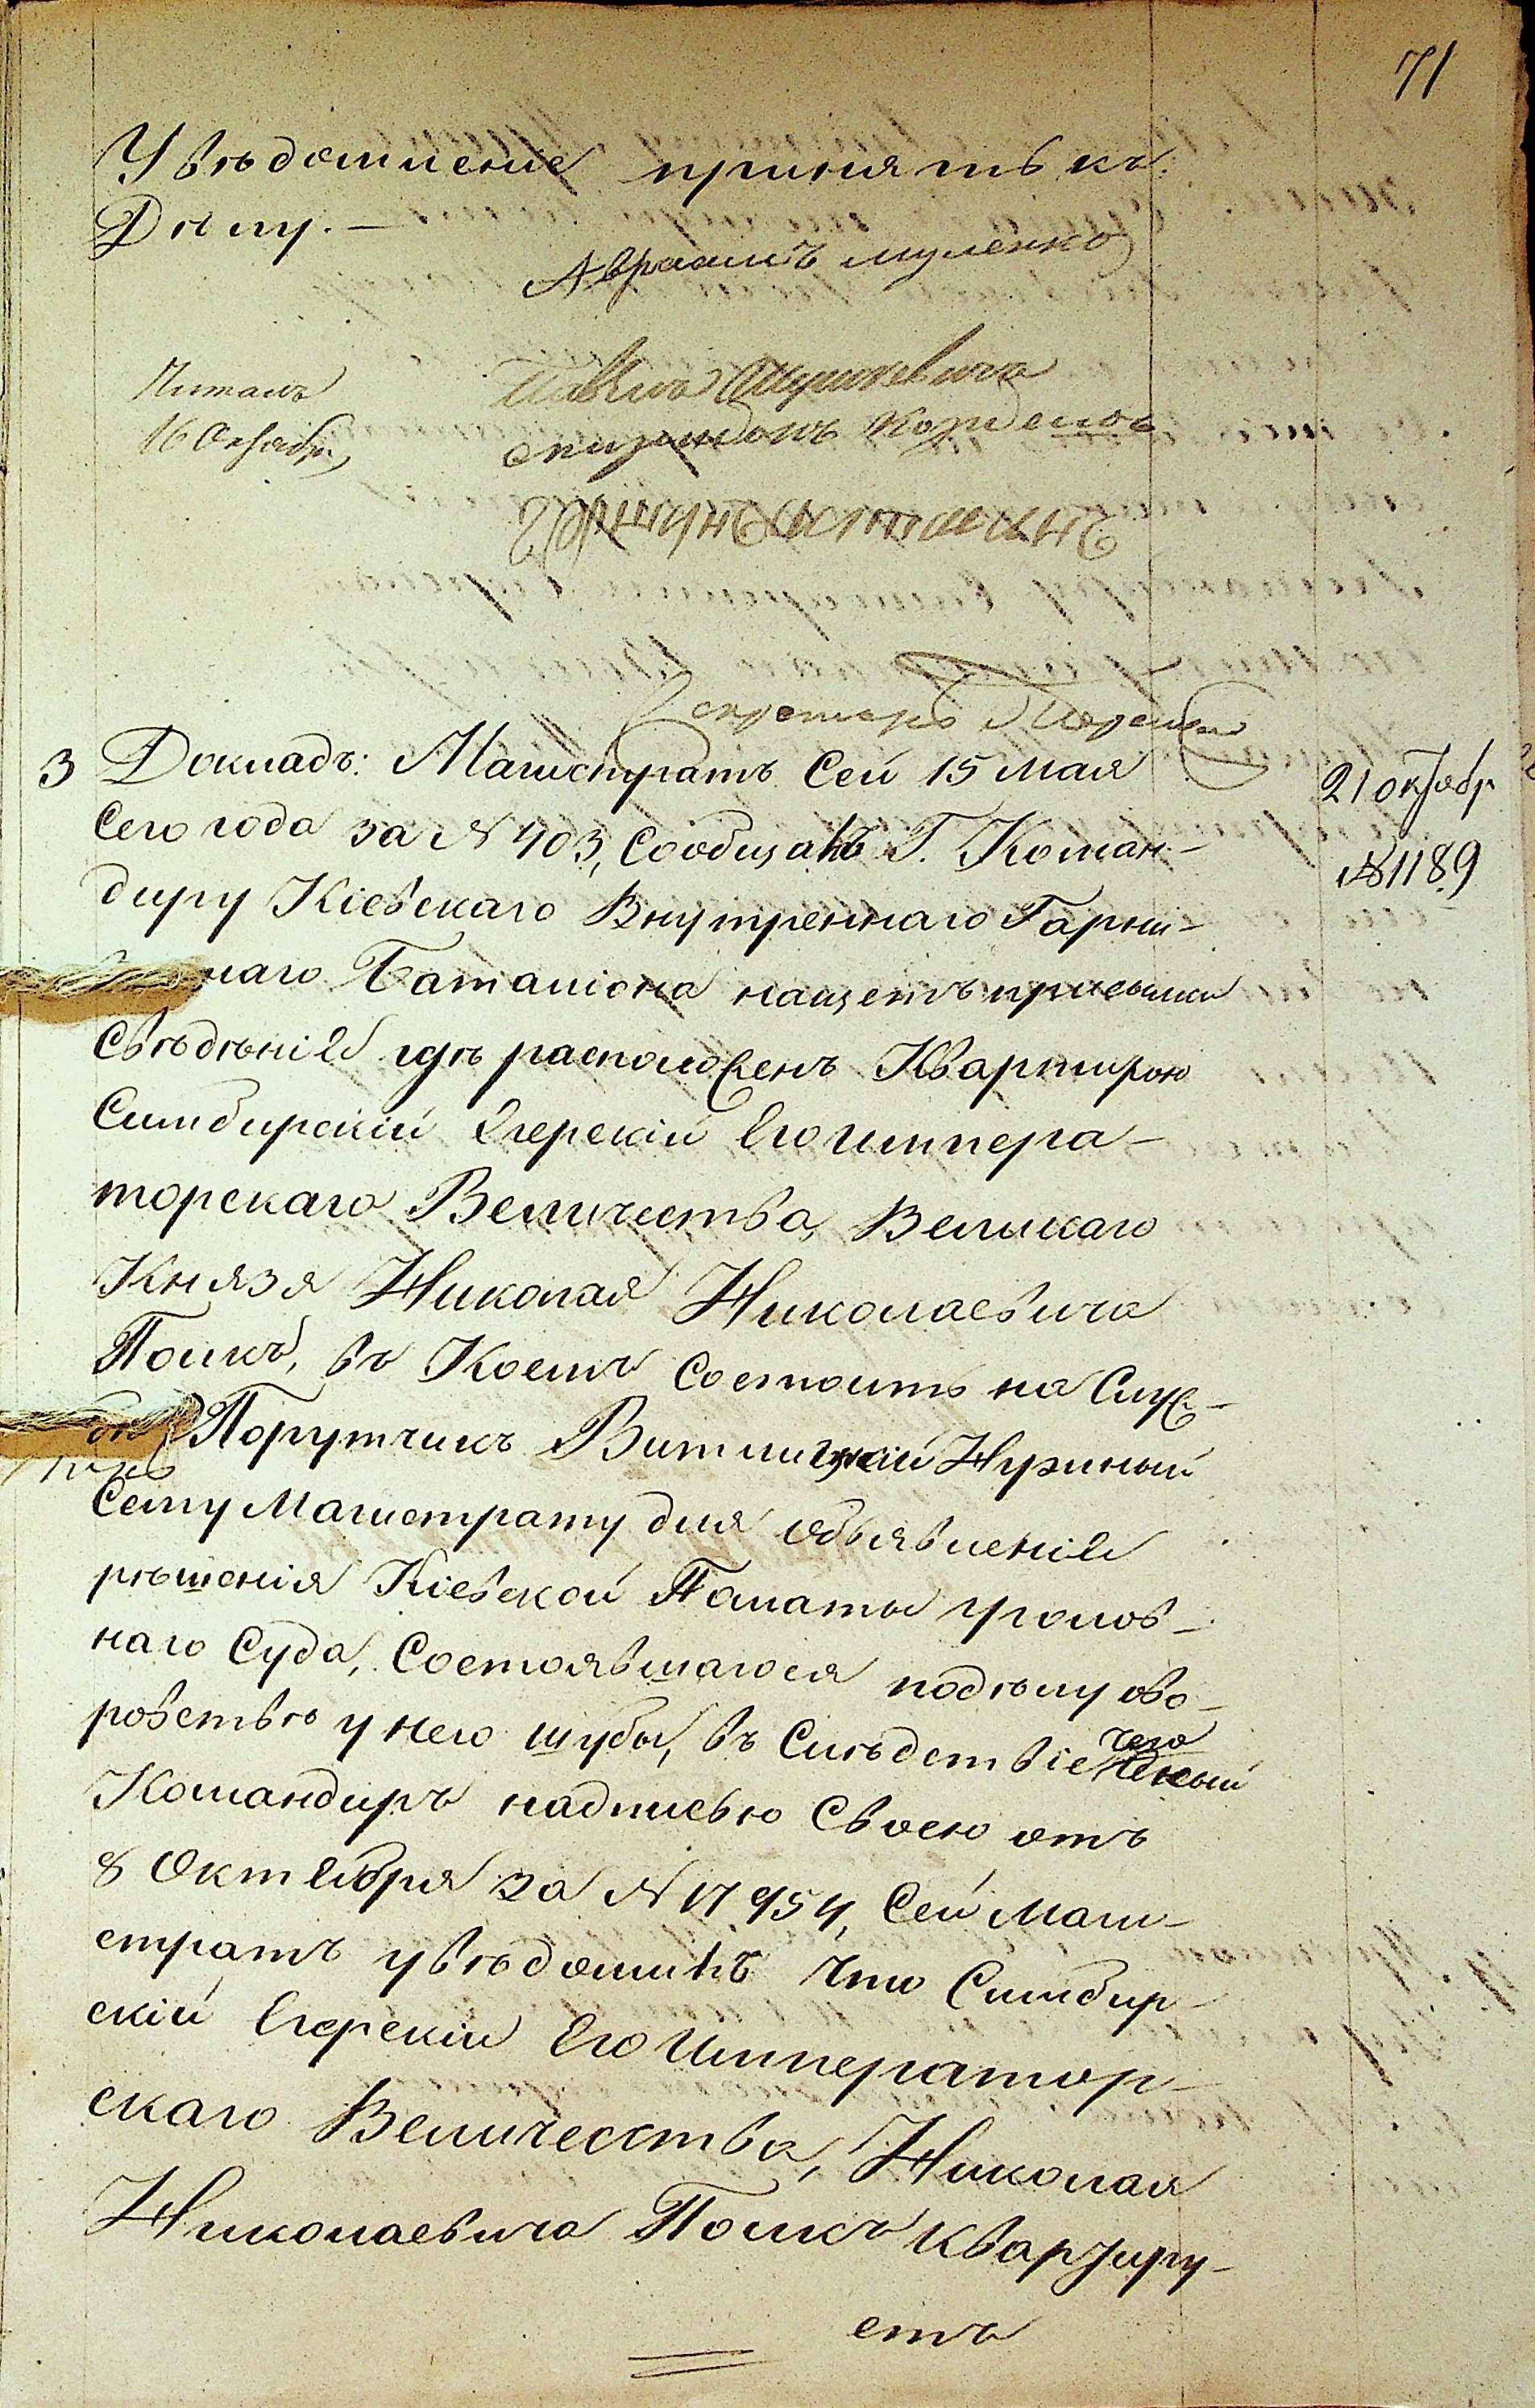 71
Увѣдомленіе принять къ
Дѣлу. —
Авраамъ Муленко
Читалъ
16 Октября
Секретарь
3 Докладъ: Магистратъ Сей 15 Мая
21 октябр
Сего года за № 403, Сообщалъ Г. Коман-
№ 1189
диру Кіевскаго Внутреннаго Гарни-
наго Баталіона нащетъ присылки
Свѣдѣнія гдѣ расположенъ Квартирою
Симбирскій Егерскій Его Импера-
торскаго Величества, Великаго
Князя Николая Николаевича
Полкъ, въ Коемъ Состоитъ на Служ-
бѣ Порутчикъ Нужный
Сему Магистрату для Объявленія
рѣшенія Кіевской Палаты Уголов-
наго Суда, Состоявшагося подѣлу ово-
ровствѣ у него шубы, въ Слѣдствіе чего
Командиръ надписью Своею отъ
8 Октября за № 17954, Сей Маги-
стратъ увѣдомилъ Что Симбир-
скій Егерскій Его Император-
скаго Величесства, Николая
Николаевича Полкъ Квартиру-
етъ